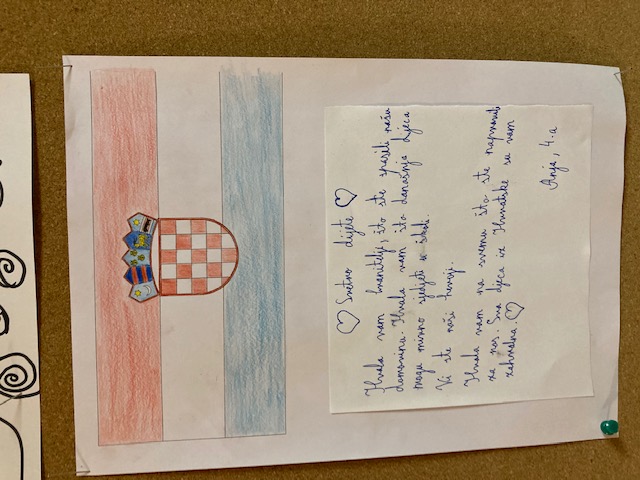 ♡ Sretno dijete ♡
Hvala vam branitelji, što ste spasili našu
domovinu. Hvala vam što današnja djeca
mogu mirno sjediti u školi.
Vi ste naši heroji.
Hvala vam na svemu što ste napravili
za nas. Sva djeca iz Hrvatske su vam
zahvalna. ♡
Anja, 4.a